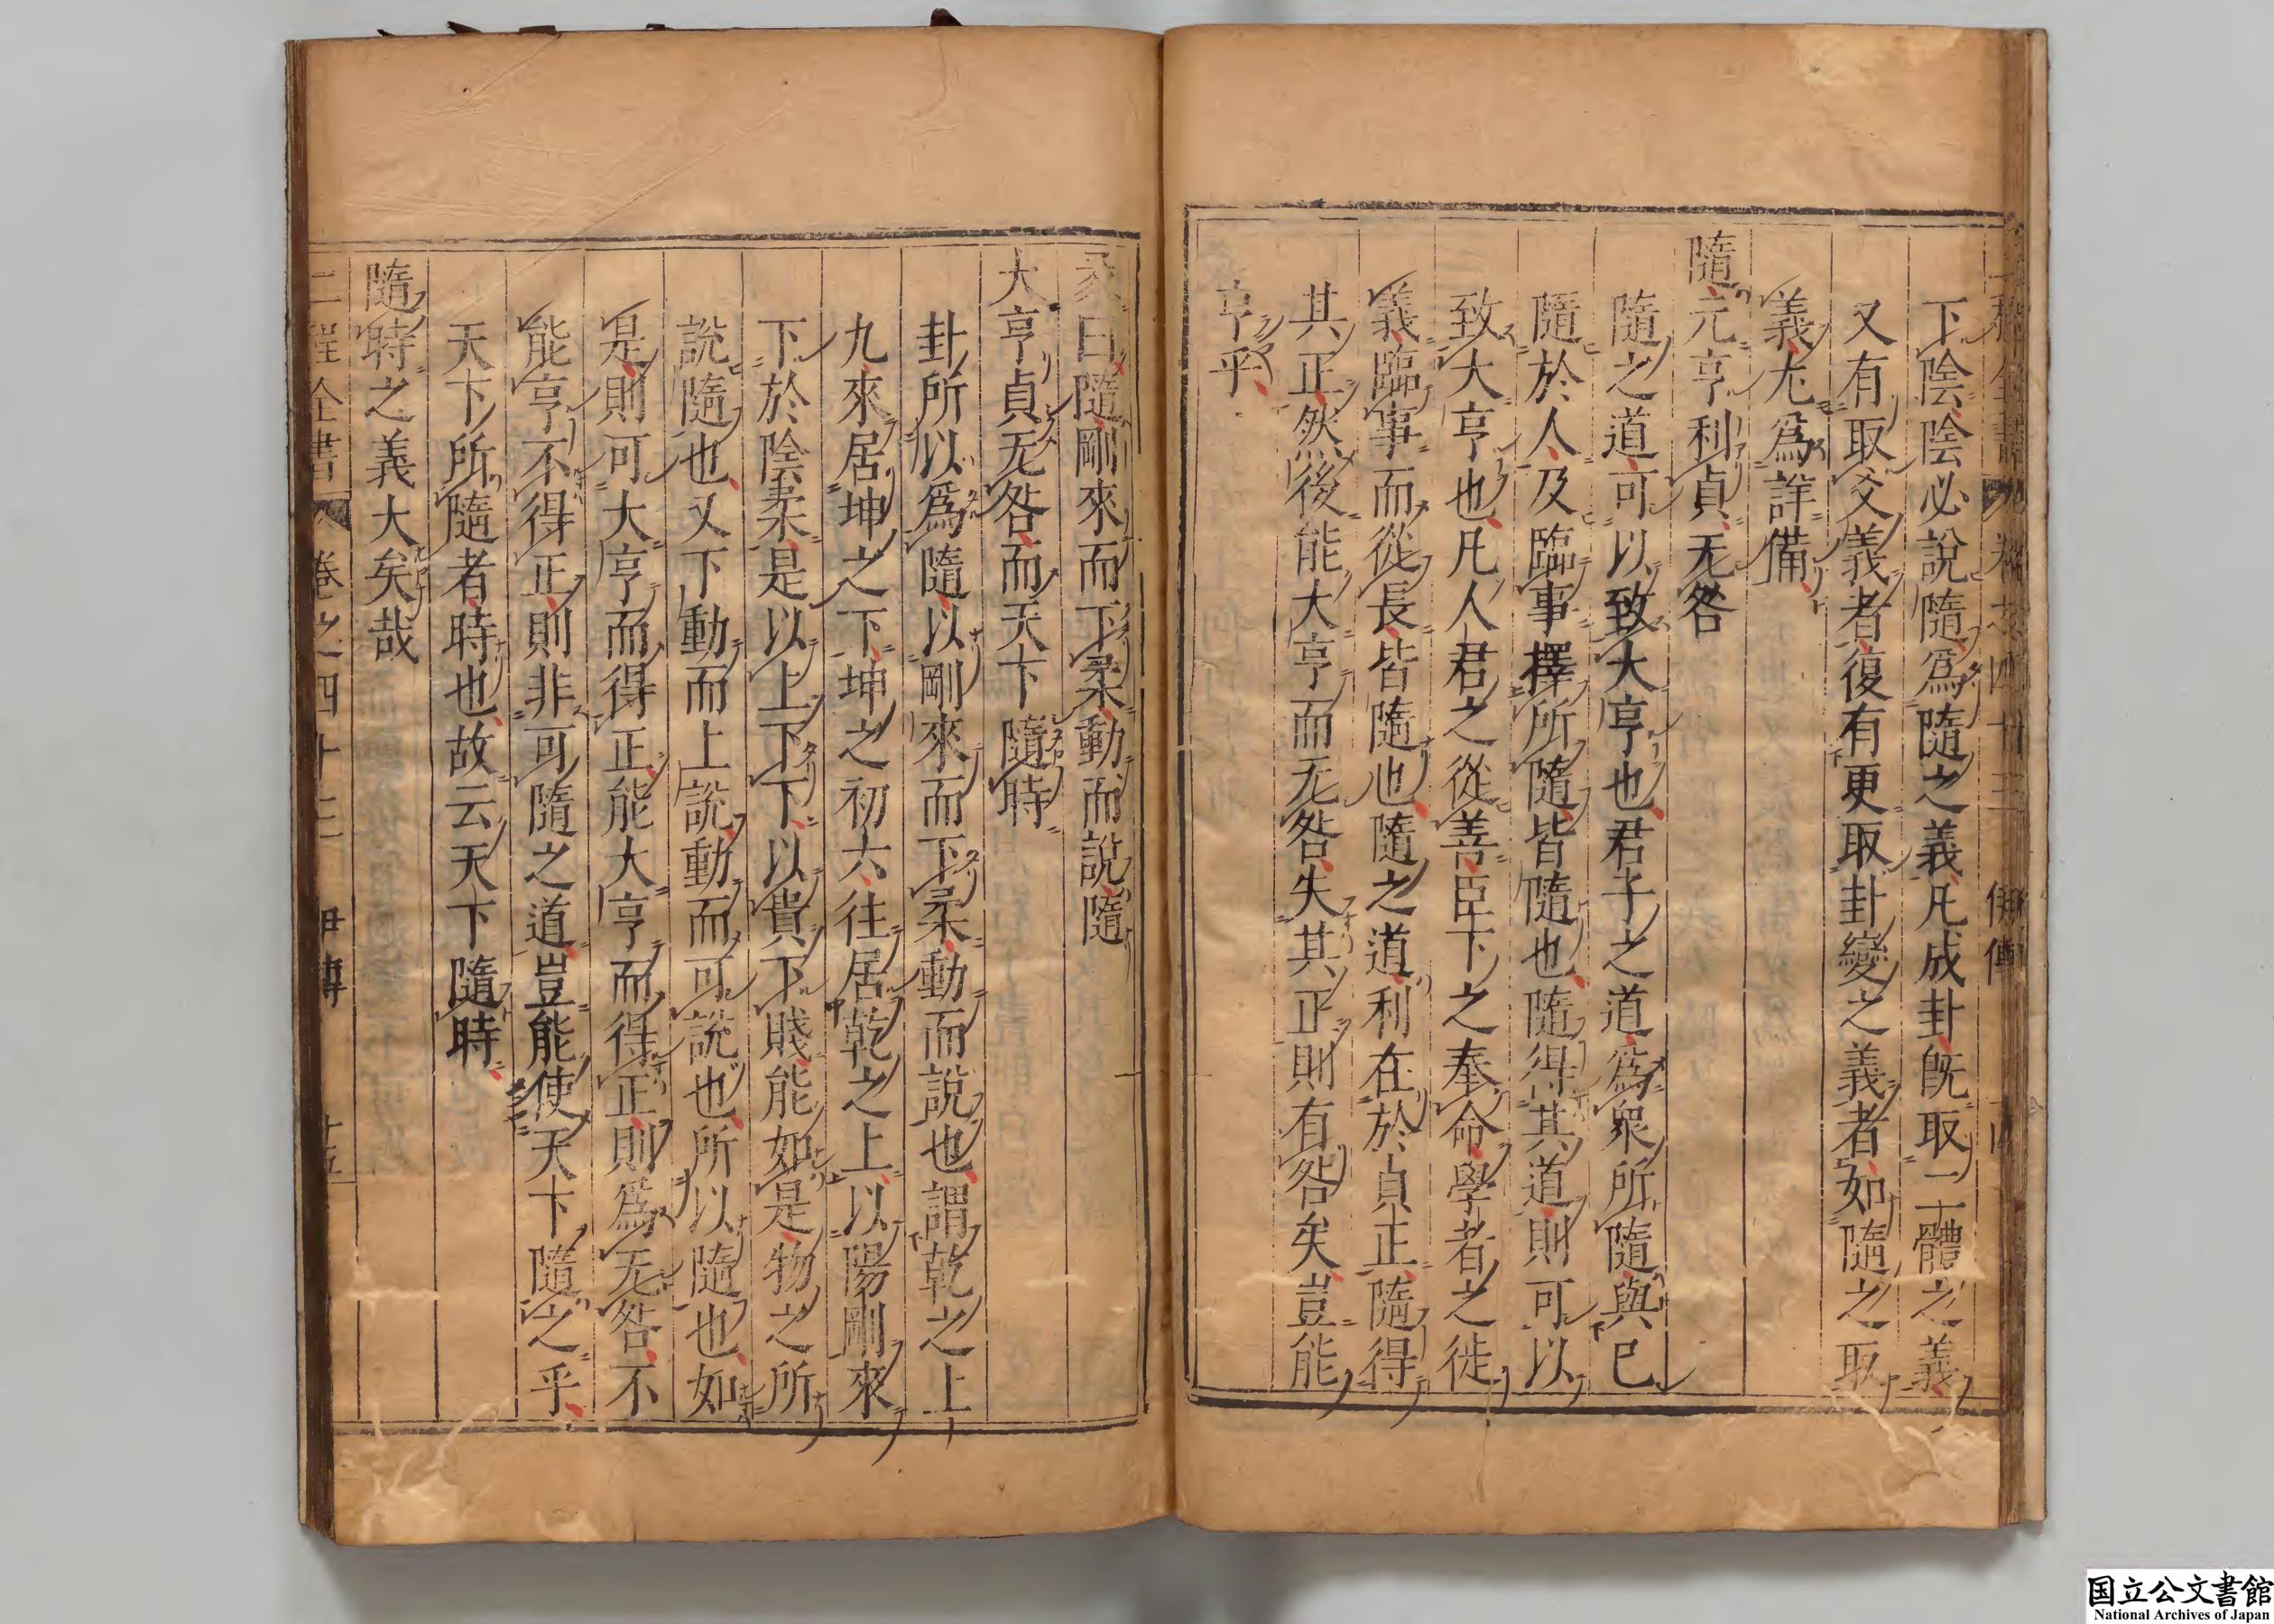 二程全書 卷之四十三 伊傳
下陰陰必說隨爲隨之義凡成卦旣取二體之義
又有取爻義者復有更取卦變之義者如隨之取
義尤爲詳備
隨元亨利貞无咎
隨之道可以致大亨也君子之道爲衆所隨與已
隨於人及臨事擇所隨皆隨也隨得其道則可以
致大亨也凡人君之從善臣下之奉命學者之徙
義臨事而從長皆隨也隨之道利在於貞正隨得
其正然後能大亨而无咎失其正則有咎矣豈能
亨乎
彖曰隨剛來而下柔動而說隨
大亨貞无咎而天下隨時
卦所以爲隨以剛來而下柔動而說也謂乾之上
九來居坤之下坤之初六往居乾之上以陽剛來
下於陰柔是以上下下以貴下賤能如是物之所
說隨也又下動而上說動而可說也所以隨也如
是則可大亨而得正能大亨而得正則爲无咎不
能亨不得正則非可隨之道豈能使天下隨之乎
天下所隨者時也故云天下隨時
隨時之義大矣哉
二程全書 卷之四十三 伊傳 十五
国立公文書館
National Archives of Japan